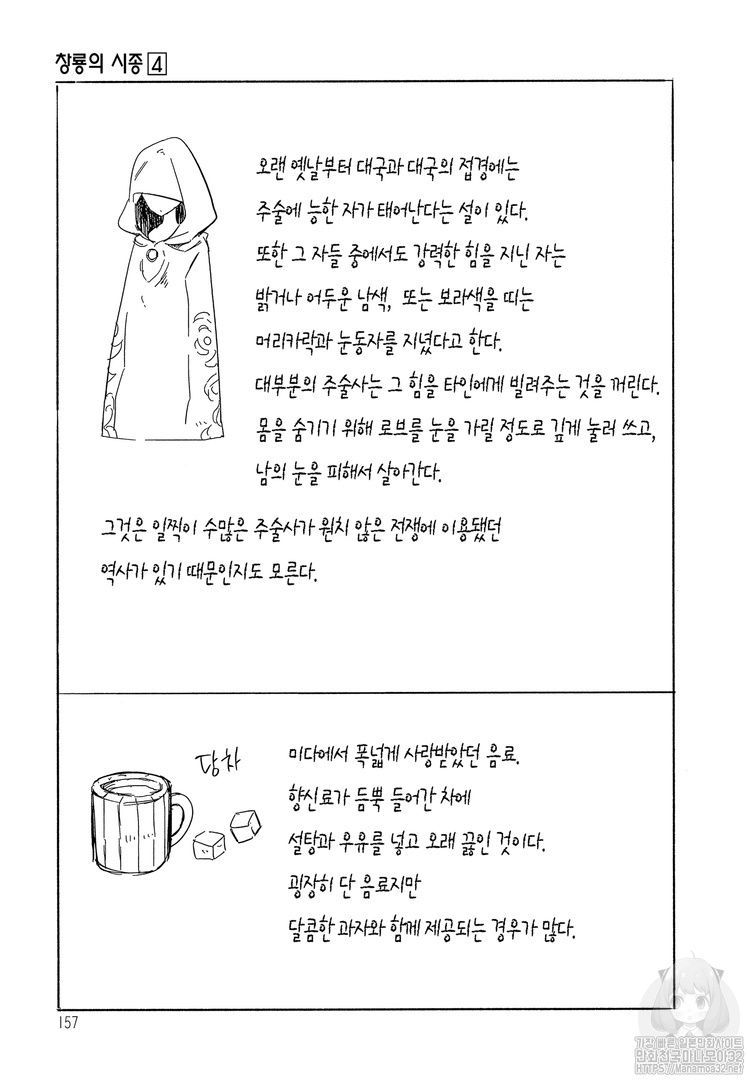 창룡의 시종 4
오랜 옛날부터 대국과 대국의 접경에는
주술에 능한 자가 태어난다는 설이 있다.
또한 그 자들 중에서도 강력한 힘을 지닌 자는
밝거나 어두운 남색, 또는 보라색을 띠는
머리카락과 눈동자를 지녔다고 한다.
대부분의 주술사는 그 힘을 타인에게 빌려주는 것을 꺼린다.
몸을 숨기기 위해 로브를 눈을 가릴 정도로 깊게 눌러 쓰고,
남의 눈을 피해서 살아간다.
그것은 일찍이 수많은 주술사가 원치 않은 전쟁에 이용됐던
역사가 있기 때문인지도 모른다.
당차
미다에서 폭넓게 사랑받았던 음료.
향신료가 듬뿍 들어간 차에
설탕과 우유를 넣고 오래 끓인 것이다.
굉장히 단 음료지만
달콤한 과자와 함께 제공되는 경우가 많다.
157
가장 빠른 일본만화사이트
만화천국 마나모아32
HTTPS://Manamoa32.net